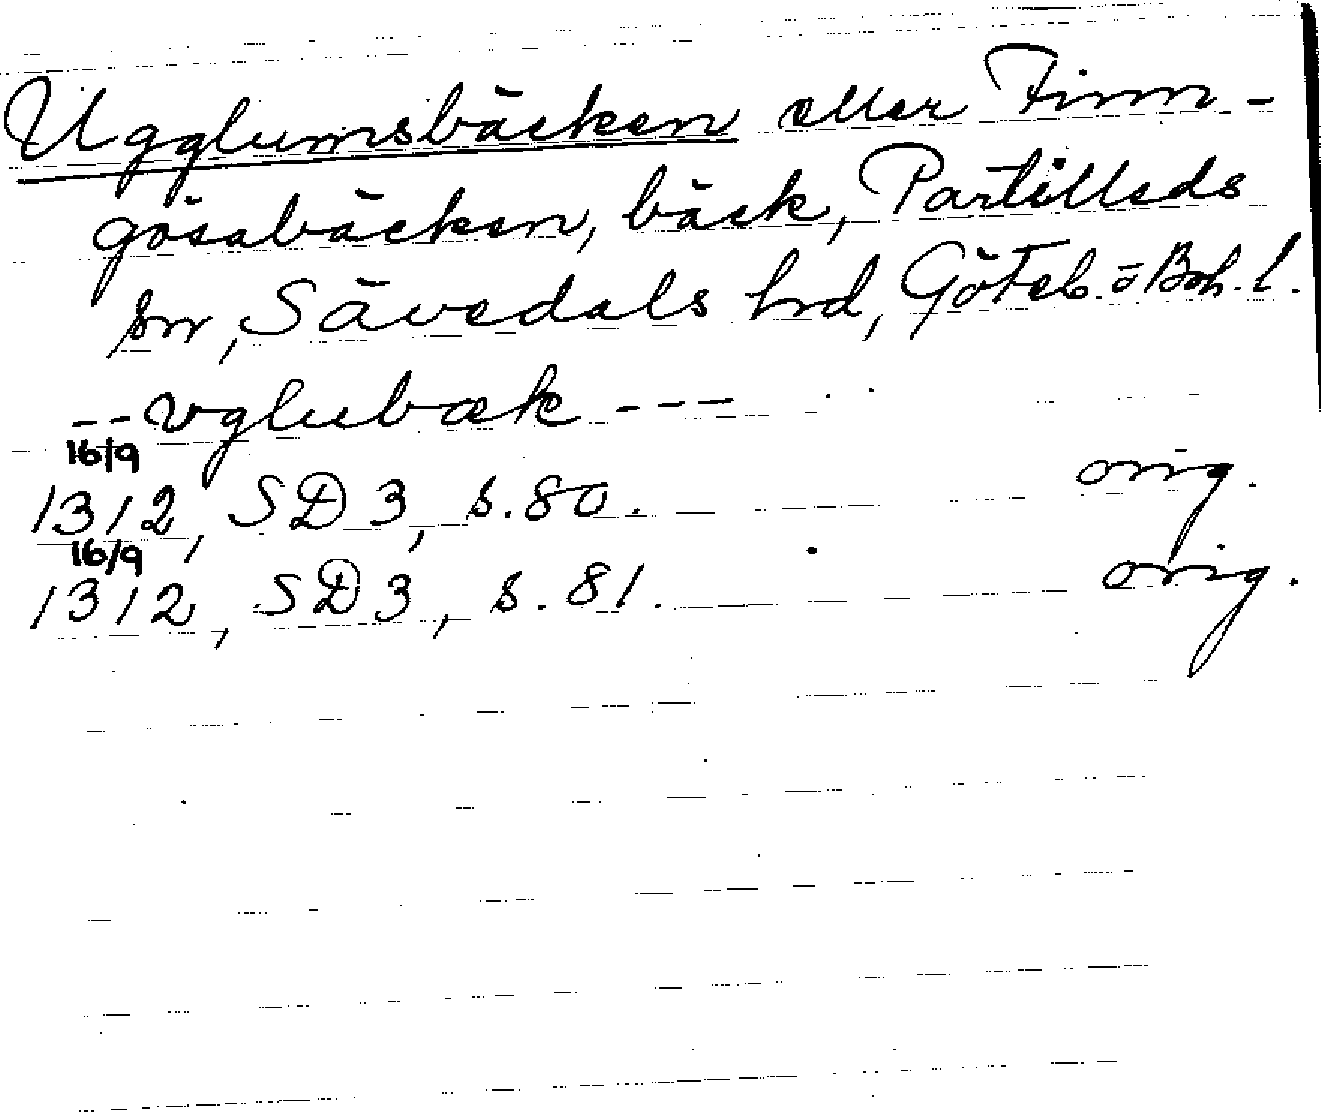 Ugglumsbäcken eller Finn-
gösabäcken, bäck, Partilleds
sn, Sävedals hrd, Göteb. o Boh. l.
-- vglubæk ---
16/9
1312, SD 3, s. 80. orig.
16/9
1312, SD 3, s. 81. orig.